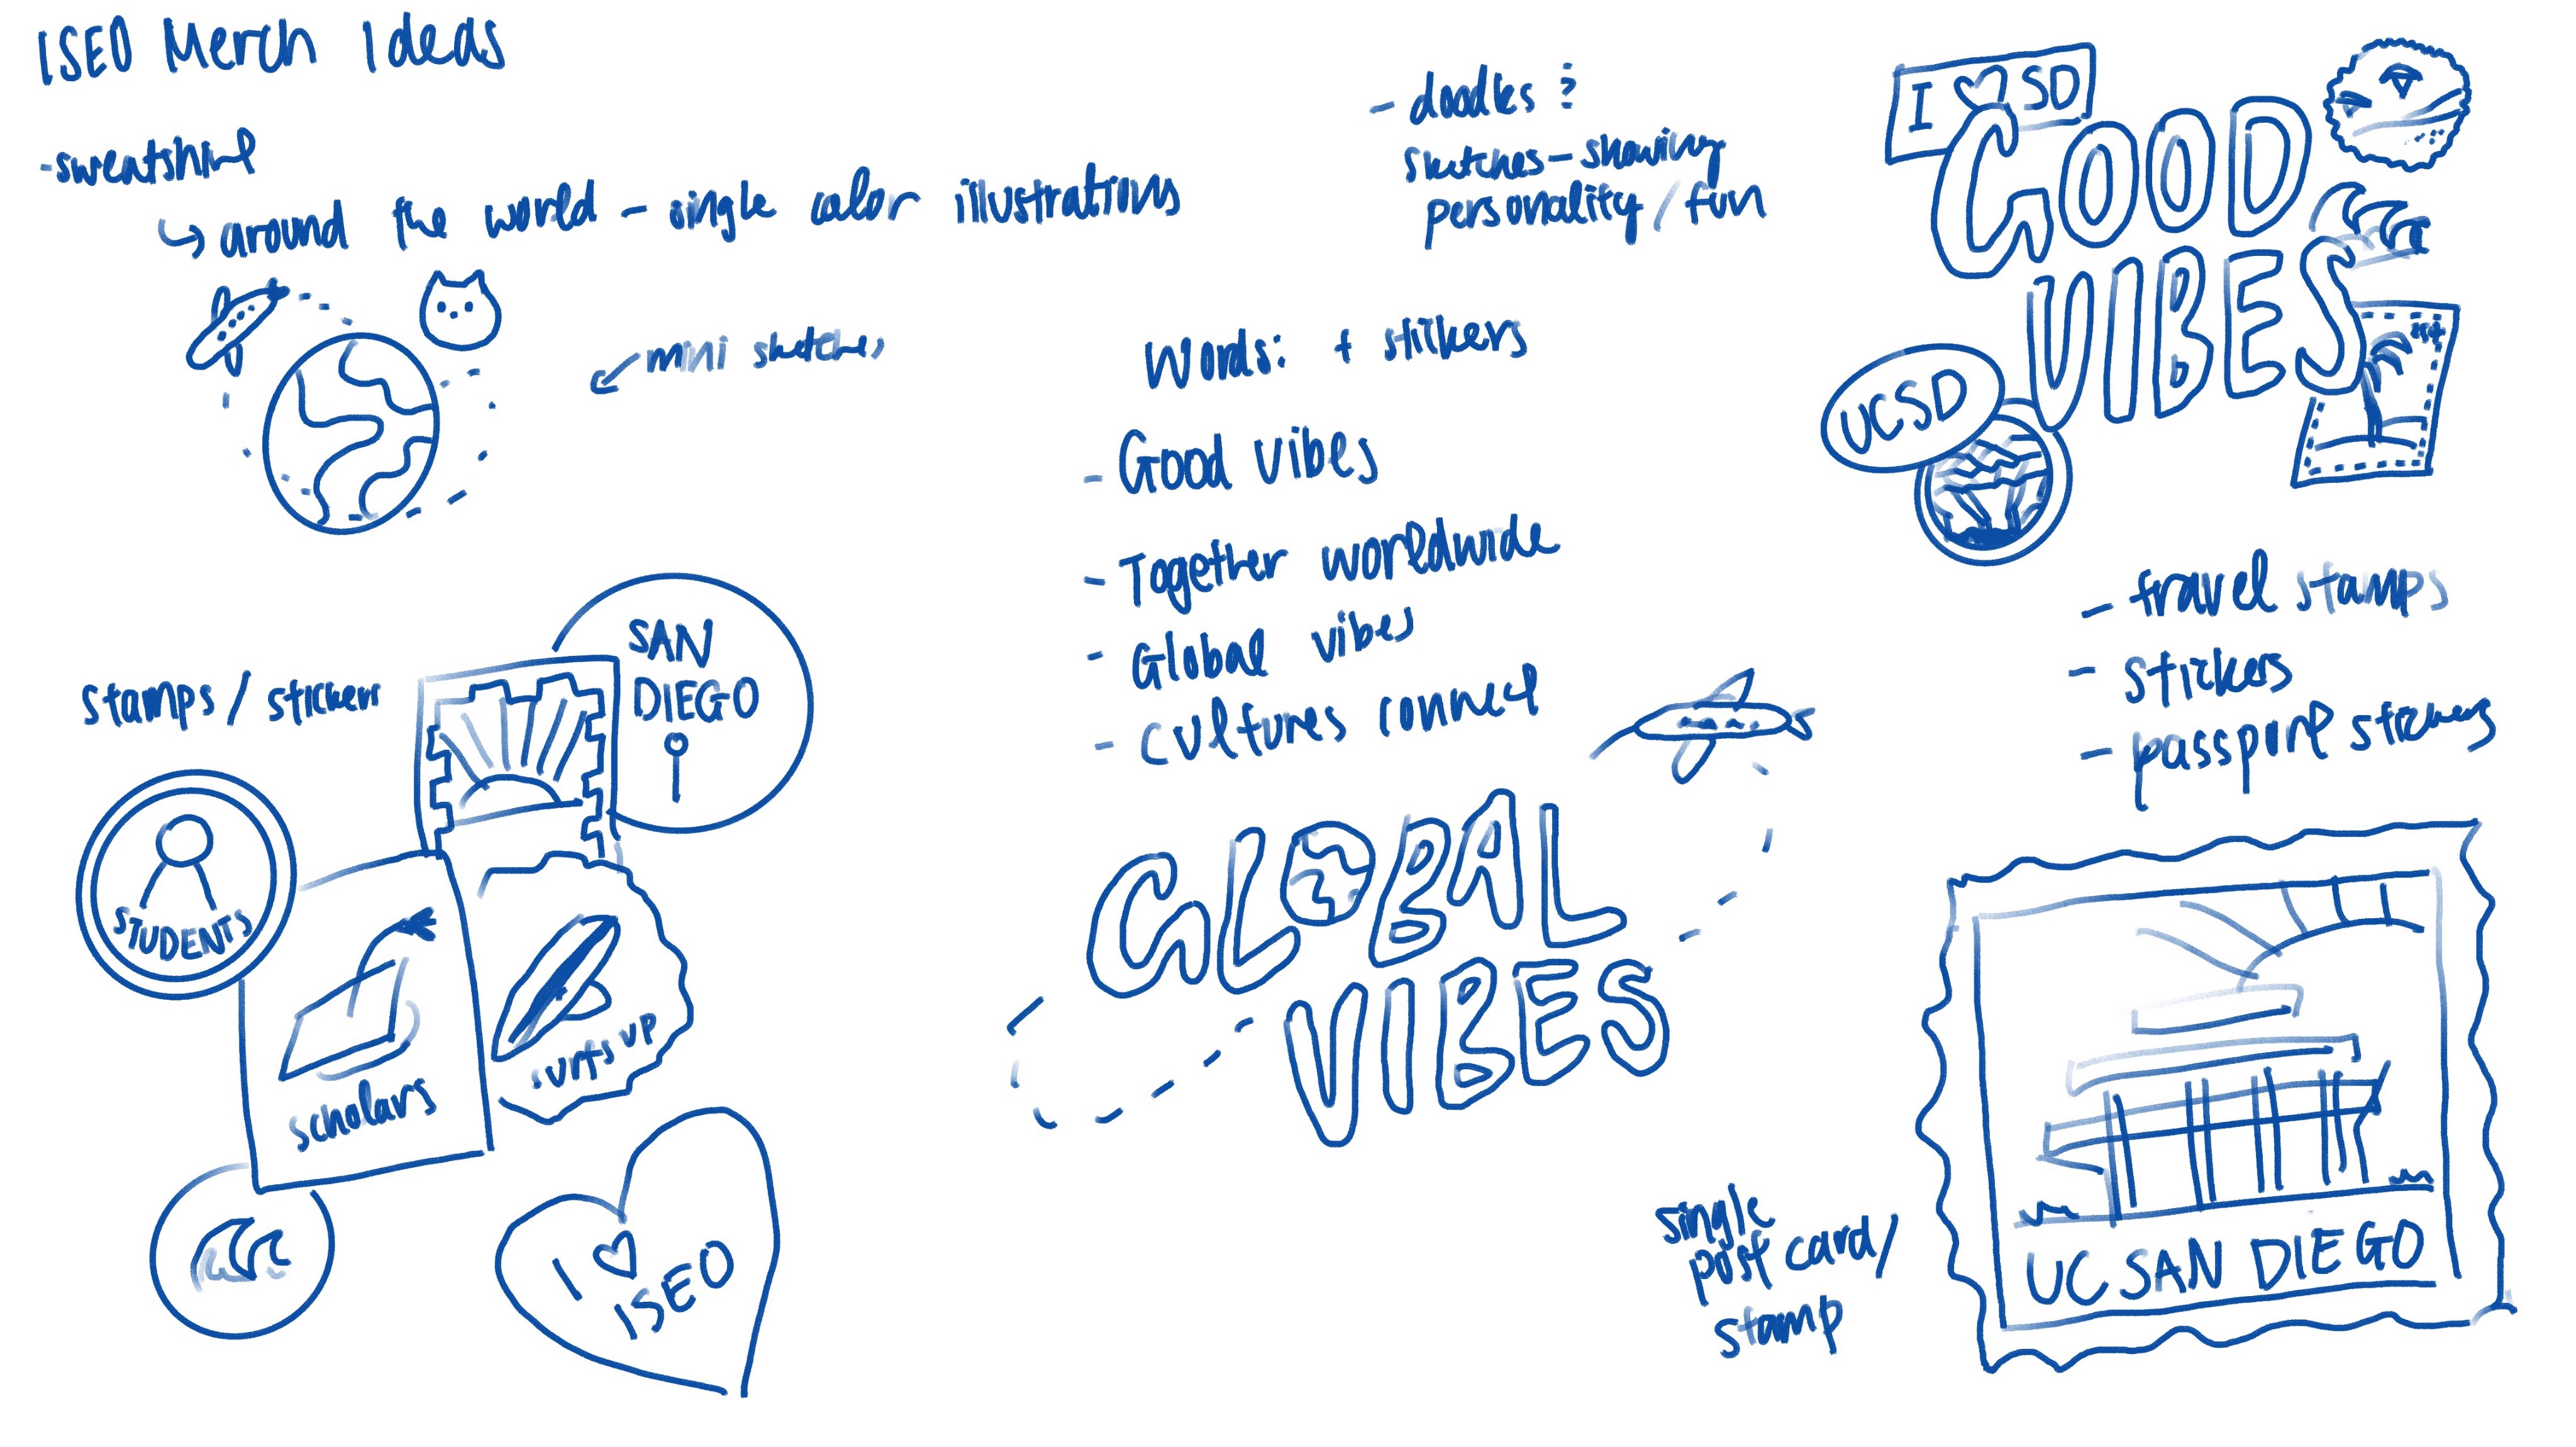 ISEO Merch Ideas
- sweatshirt
↳ around the world - single color illustrations
mini sketches
stamps / stickers
SAN
DIEGO
STUDENTS
scholars
surfs up
I ♡
ISEO
- doodles &
sketches - showing
personality / fun
Words: + stickers
- Good vibes
- Together worldwide
- Global vibes
- cultures connect
GLOBAL
VIBES
I ♡ SD
GOOD
VIBES
UCSD
- travel stamps
- stickers
- passport stickers
single
post card/
stamp
UC SAN DIEGO